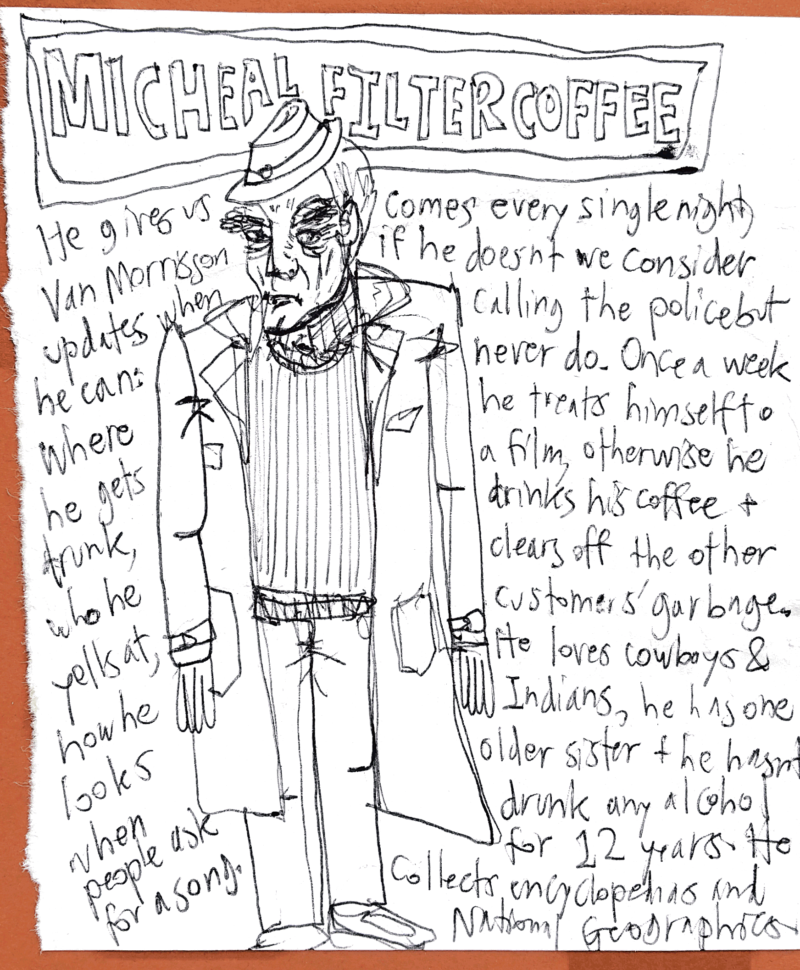 MICHEAL FILTER COFFEE
He gives us
Van Morrisson
updates when
he can:
Where
he gets
trunk,
who he
yells at,
how he
looks
when
people ask
for a song.
Comes every single night,
if he doesnt we consider
calling the police but
never do. Once a week
he treats himself to
a film, otherwise he
drinks his coffee +
clears off the other
customers' garbage.
He loves cowboys &
Indians, he has one
older sister + he hasnt
drunk any alcohol
for 12 years. He
Collects encyclopedias and
National Geographics.